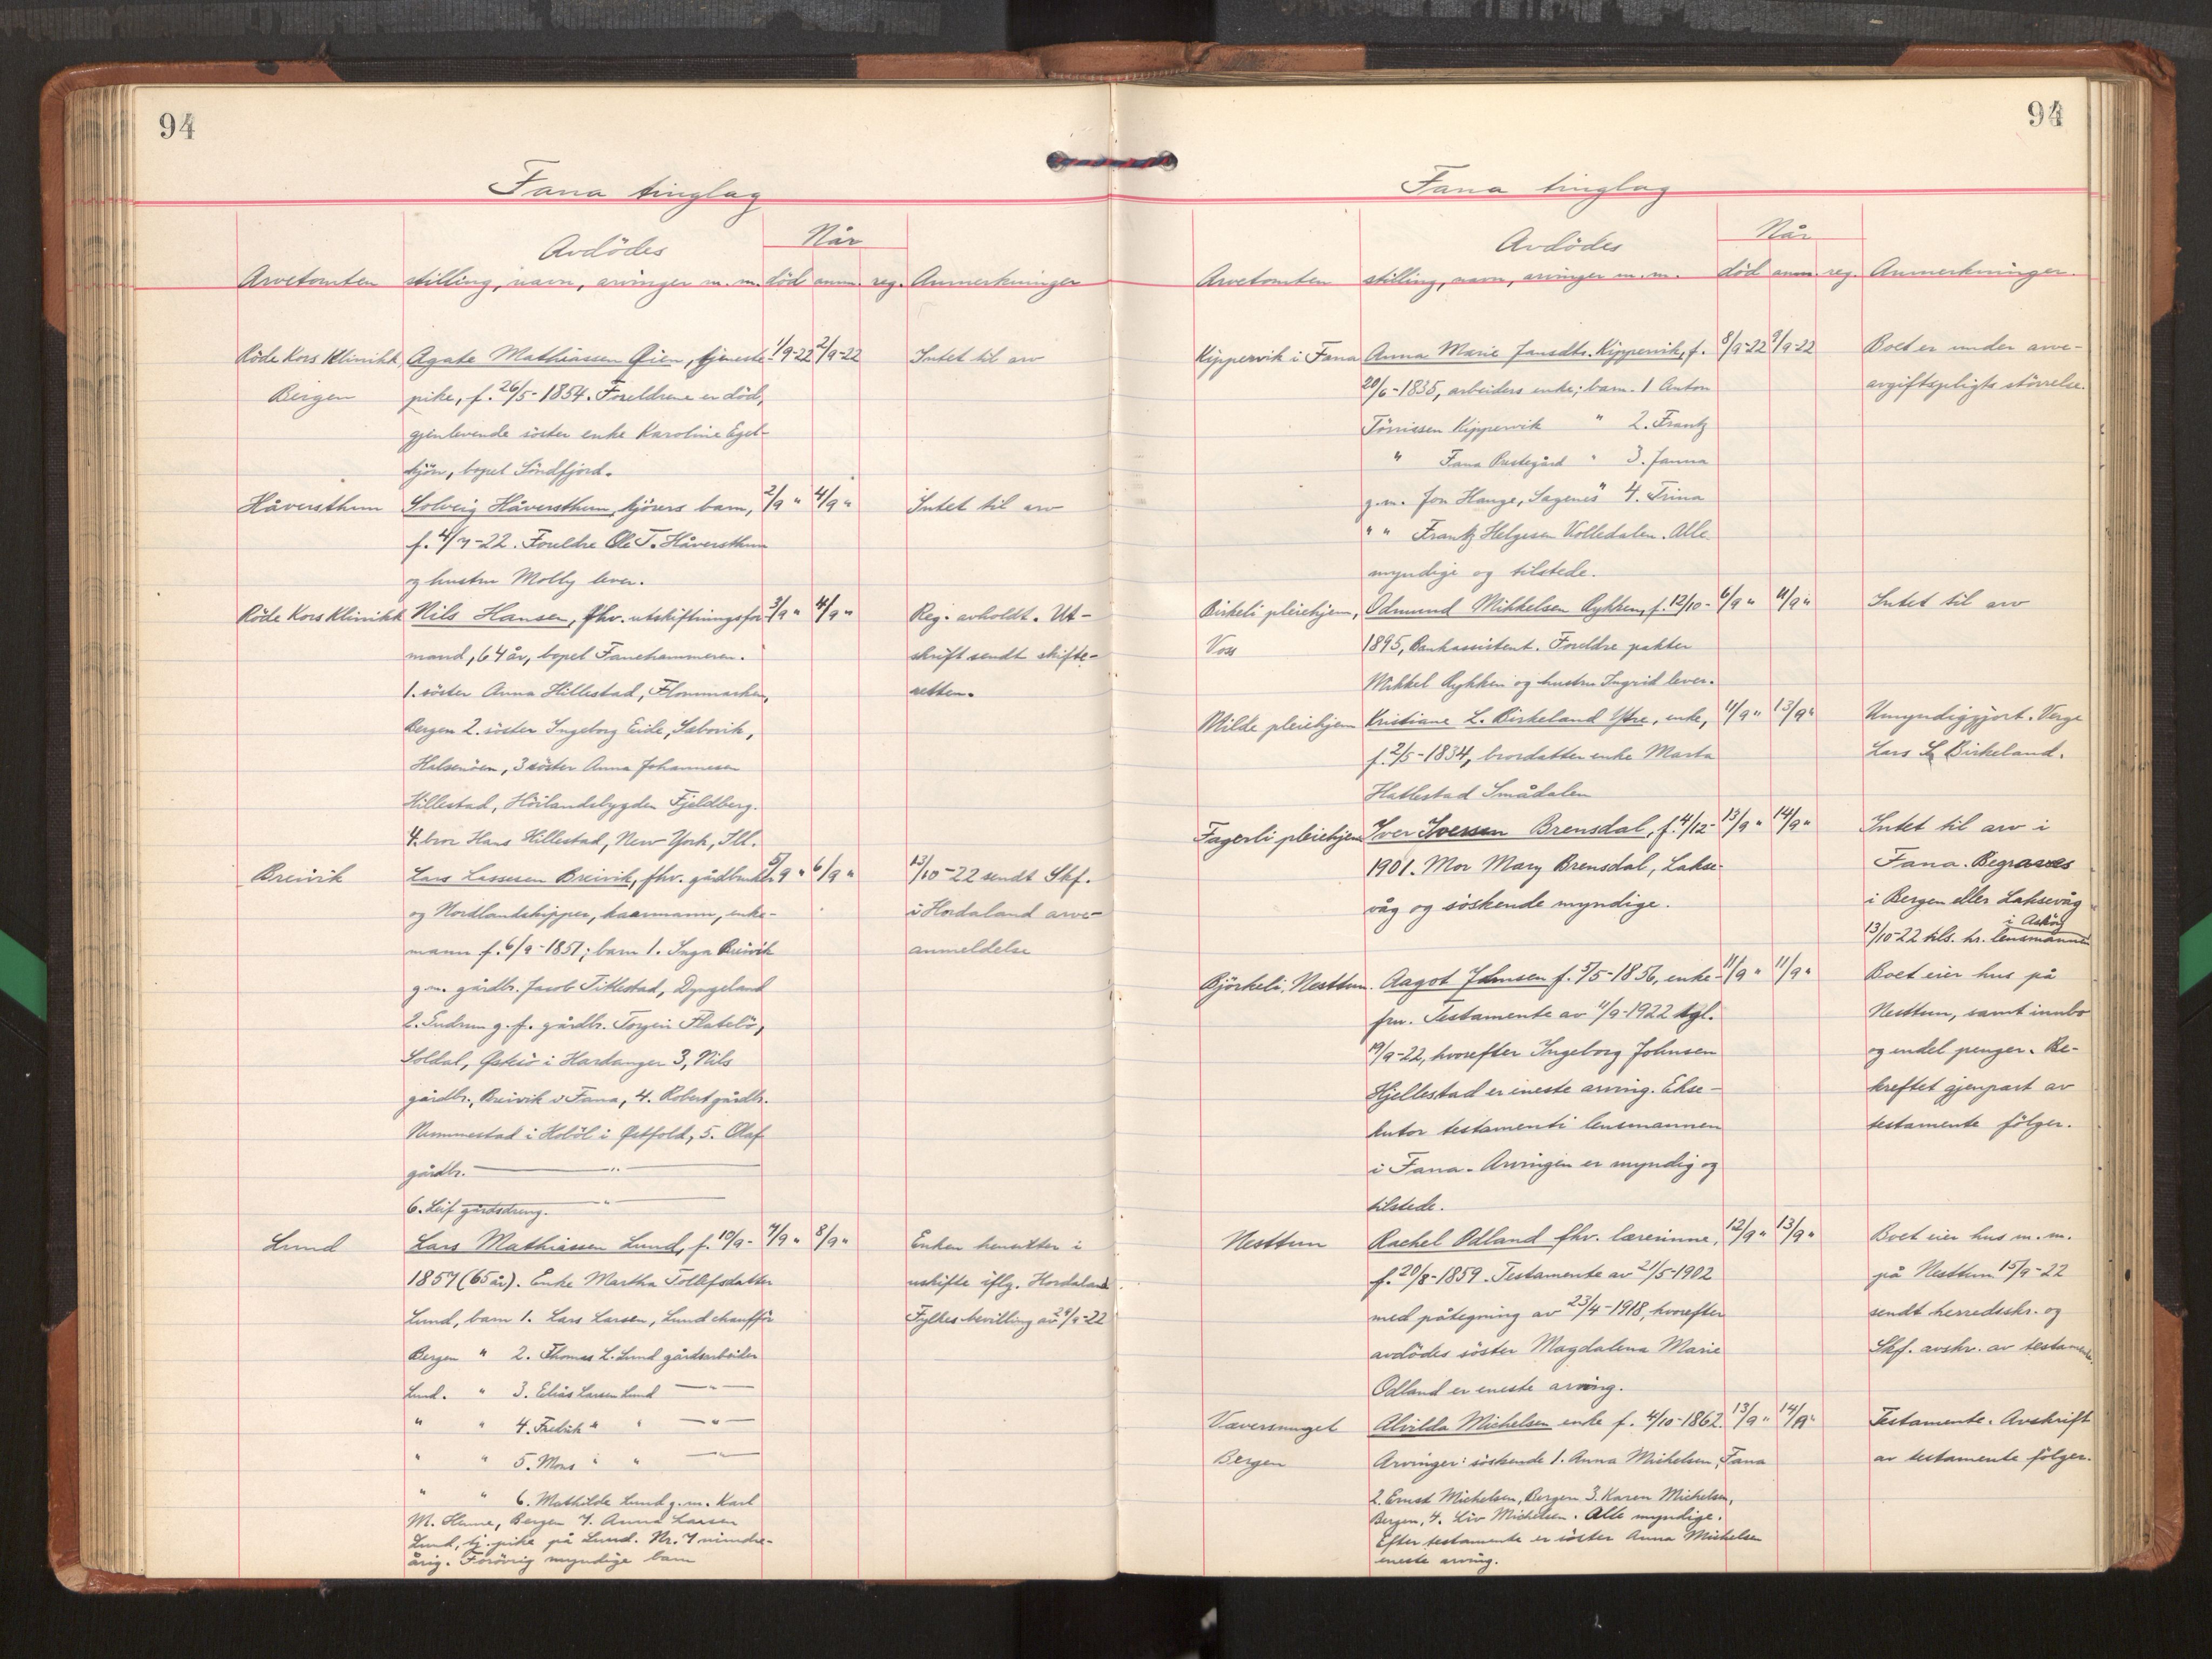 94
Fana tinglag
Avdödes
Når
Arvetomten stilling, navn, arvinger m. m. död anm. reg. Anmerkninger
Röde Kors Klinikk, Agate Mathiassen Öien, tjeneste- 1/9-22 2/9-22 Intet til arv
Bergen pike, f. 26/5-1854. Foreldrene er död,
gjenlevende söster enke Karoline
bopel Söndfjord.
Håversthun Solveig Håversthun, kjörers barn, 2/9 " 4/9 " Intet til arv
f. 4/7-22. Foreldre Ole T. Håversthun
og hustru Molly lever.
Röde Kors Klinikk Nils Hansen, fhv. utskiftningsfor- 3/9 " 4/9 " Reg. avholdt. Ut-
mand, 64 år, bopel Fanehammeren. skrift sendt skifte-
1. söster Anna Hillestad, retten.
Bergen 2. söster Ingeborg Eide, Sæbovik,
Halsenöen, 3 söster Anna Johannesen
Hillestad, Höilandsbygden Fjeldberg.
4. bror Hans Hillestad, New-York, Ill.
Breivik Lars Lassesen Breivik, fhv. gårdbruker 5/9 " 6/9 " 13/10-22 sendt Skf.
og Nordlandskipper, enke- i Hordaland arve-
mann f. 6/9-1851; barn 1. Inga Breivik anmeldelse
g.m. gårdbr. Jacob Tittlestad, Dyngeland
2. Gudrun g. f. gårdbr. Torgeir Flatebö,
i Hardanger 3, Nils
gårdbr., Breivik i Fana, 4. Robert gårdbr.
i Hoböl i Östfold, 5. Olaf
gårdbr. — " —
6. Leif gårdsdreng. — " —
Lund Lars Mathiassen Lund, f. 10/9- 7/9 " 8/9 " Enken hensitter i
1857 (65 år). Enke Martha Tollefsdatter uskifte iflg. Hordaland
Lund, barn 1. Lars Larsen, Lund chaufför Fylkes bevilling av 29/9-22
Bergen " 2. Thomas L. Lund gårdsarbeider
Lund. " 3. Elias Larsen Lund — " —
" " 4. Fredrik " " — " —
" " 5. Mons " " — " —
" " 6. Mathilde Lund g. m. Karl
M. Henne, Bergen 7. Anna Larsen
Lund, tj. pike på Lund. Nr. 7 mindre-
årig. Forövrig myndige barn
94
Fana tinglag
Avdödes
Når
Arvetomten stilling, navn, arvinger m. m. död anm. reg. Anmerkninger.
Kippervik i Fana Anna Marie Jansdtr. Kippervik, f. 8/9-22 9/9-22 Boet er under arve-
20/6-1835, arbeiders enke; barn. 1. Anton avgiftspligts störrelse.
Tönissen Kippervik " 2. Frantz
" Fana Prestegård " 3. Janna
g.m. Jon Hauge, Sagenes " 4. Trina
" " Frantz Helgesen Volledalen. Alle
myndige og tilstede.
Birkeli pleiehjem, Odmund Mikkelsen Rykken, f. 12/10- 6/9 " 11/9 " Intet til arv
Voss 1895, Bankassistent. Foreldre pakter
Mikkel Rykken og hustru Ingrid lever.
Milde pleiehjem Kristiane L. Birkeland Ytre, enke, 11/9 " 13/9 " Umyndiggjort. Verge
f. 2/5-1834, brordatter enke Marta Lars L. Birkeland.
Hatlestad Smådalen
Fagerli pleiehjem Iver Iversen Brensdal, f. 4/12- 13/9 " 14/9 " Intet til arv i
1901. Mor Mary Brensdal, Lakse- Fana. Begraves
våg og söskende myndige. i Bergen eller Laksevåg
i Asköy
13/10-22 tils. hr. lensmannen
Björkeli, Nesttun. Aagot Johnsen f. 5/5-1856, enke- 11/9 " 11/9 " Boet eier hus på
fru. Testamente av 11/9-1922 tgl. Nesttun, samt innbo
19/9-22, hvorefter Ingeborg Johnsen og endel penger. Be-
Hjellestad er eneste arving. Ekse- kreftet gjenpart av
kutor testamenti lensmannen testamente fölger.
i Fana. Arvingen er myndig og
tilstede.
Nesttun Rachel Odland fhv. lærerinne, 12/9 " 13/9 " Boet eier hus m. m.
f. 20/8-1859. Testamente av 21/5-1902 på Nesttun 15/9-22
med påtegning av 23/4-1918, hvorefter sendt herredsskr. og
avdödes söster Magdalena Marie Skf. avskr. av testamente.
Odland er eneste arving.
Væversmuget Alvilda Michelsen enke f. 4/10-1862. 13/9 " 14/9 " Testamente. Avskrift
Bergen Arvinger: söskende 1. Anna Michelsen, Fana av testamente fölger.
2. Ernst Michelsen, Bergen 3. Karen Michelsen,
Bergen, 4. Liv Michelsen. Alle myndige.
Efter testamente er söster Anna Michelsen
eneste arving.